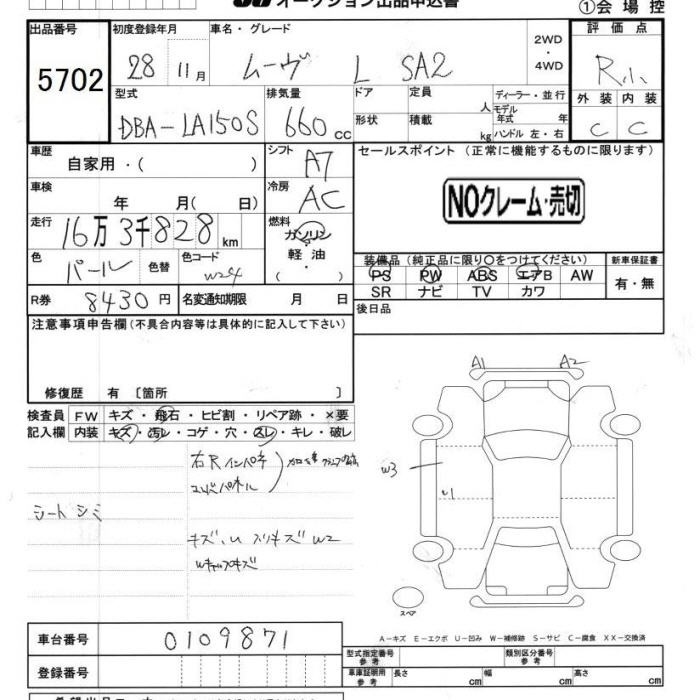 オークション出品申込書
①会場控
出品番号 初度登録年月 車名・グレード 評価点
5702 28 11月 ムーヴ L SA2 2WD ・ 4WD R小
型式 排気量 ドア 定員 人 ディーラー・並行 外装 内装
DBA-LA150S 660cc 形状 積載 kg モデル年式 年 ハンドル 左・右 C C
車歴 自家用・( ) シフト A7 セールスポイント (正常に機能するものに限ります)
車検 年 月( 日) 冷房 AC NOクレーム・売切
走行 16万3千828km 燃料 ガソリン ・ 軽油 ・ ( )
色 パール 色替 色コード W24 装備品 (純正品に限り○をつけてください) 新車保証書
PS PW ABS エアB AW 有・無
SR ナビ TV カワ
R券 8430円 名変通知期限 月 日 後日品
注意事項申告欄(不具合内容等は具体的に記入して下さい)
修復歴 有 〔箇所 〕
検査員 FW キズ・飛石・ヒビ割・リペア跡・×要
記入欄 内装 キズ・汚レ・コゲ・穴・スレ・キレ・破レ
A1 A2
右Rインパネ
シートシミ
W3
U1
キズ、U スリキズ W2
スペア
A-キズ E-エクボ U-凹み W-補修跡 S-サビ C-腐食 XX-交換済
車台番号 0109871 型式指定番号 参考 類別区分番号 参考
登録番号 車庫証明用 参考 長さ cm 幅 cm 高さ cm